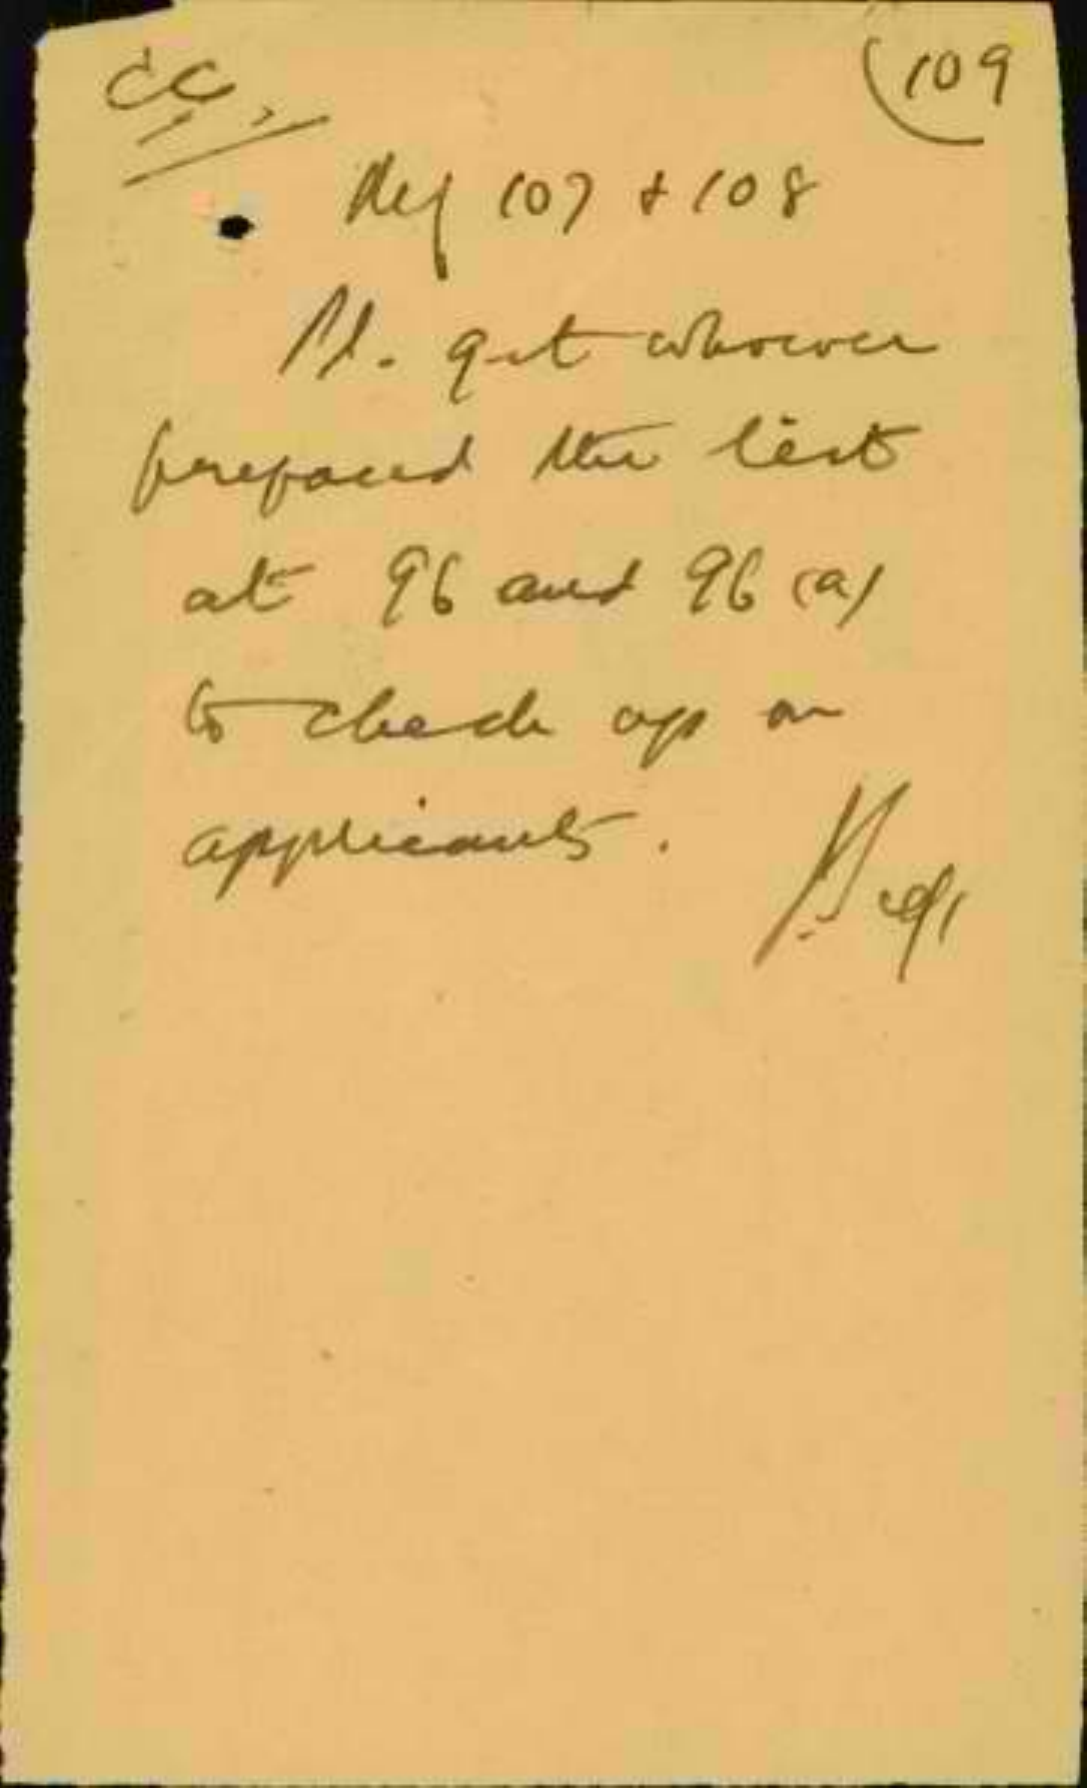 CC
109
Ref 107 & 108
Pl. get whoever
prepared the list
at 96 and 96 (a)
to check up on
applicants.